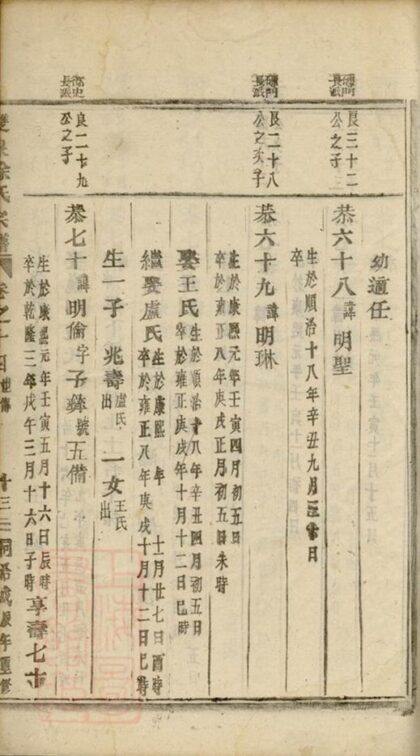 幼適任
長派
良三十二
公之子
恭六十八諱明聖
生於順治十八年辛丑九月三十日
卒
長派
良二十八
公之次子
恭六十九諱明琳
生於康熙元年壬寅四月初五日
卒於康熙四十五年丙戌正月初五日未時
娶王氏
生於順治十八年辛丑四月初五日
卒於雍正庚戌年十月十二日巳時
繼娶盧氏
生於康熙 年 十一月廿七日酉時
卒於雍正八年庚戌十月十二日巳時
生一子 兆壽盧氏出 一女王氏出
長派
良二十九
公之子
恭七十諱明倫字子彝號五備
生於康熙元年壬寅五月十六日辰時
卒於乾隆三年戊午三月十六日子時享壽七十
徐氏宗譜
卷之十四
十三
祠 戊辰年重修